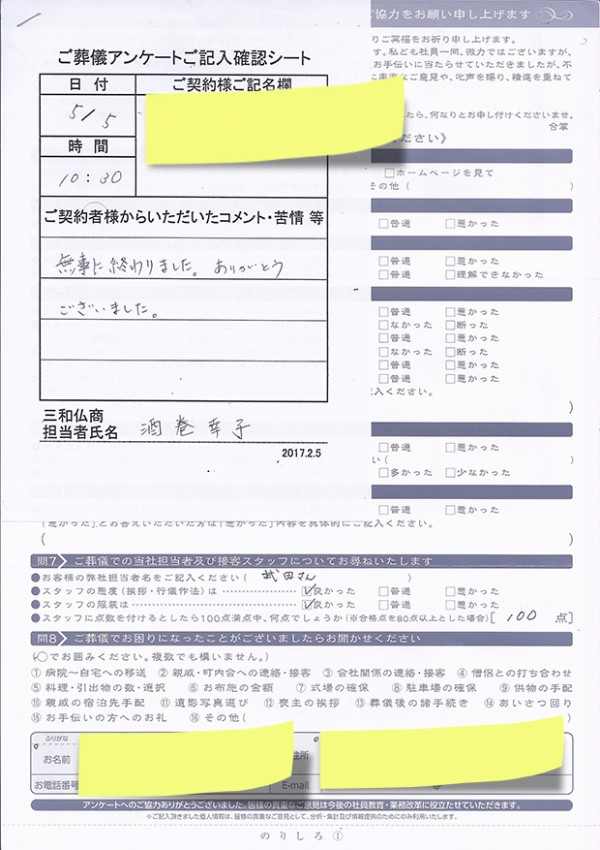 ご協力をお願い申し上げます
ご葬儀アンケートご記入確認シート
日付
ご契約様ご記名欄
5/5
時間
10:30
ご契約者様からいただいたコメント・苦情 等
無事に終わりました。ありがとう
ございました。
三和仏商
担当者氏名 酒巻幸子
2017.2.5
りご冥福をお祈り申し上げます。
す。私ども社員一同、微力ではございますが、
お手伝いに当たらせていただきましたが、不
ご意見や、叱声を賜り、精進を重ねて
たら、何なりとお申し付けくださいませ。
合掌
ください》
□ホームページを見て
その他( )
□普通 □悪かった
□普通 □悪かった
□普通 □理解できなかった
□普通 □悪かった
□なかった □断った
□普通 □悪かった
□なかった □断った
□普通 □悪かった
□普通 □悪かった
記入ください。
)
□普通 □悪かった
い( )
□多かった □少なかった
□普通 □悪かった
「悪かった」とお答えいただいた方は「悪かった」内容を具体的にご記入ください。
( )
問7 ご葬儀での当社担当者及び接客スタッフについてお尋ねいたします
●お客様の弊社担当者名をご記入ください( 武田さん )
●スタッフの態度(挨拶・行儀作法)は ☑良かった □普通 □悪かった
●スタッフの服装は ☑良かった □普通 □悪かった
●スタッフに点数を付けるとしたら100点満点中、何点でしょうか(※合格点を80点以上とした場合)[ 100 点]
問8 ご葬儀でお困りになったことがございましたらお聞かせください
(○でお囲みください。複数でも構いません。)
①病院～自宅への移送 ②親戚・町内会への連絡・接客 ③会社関係の連絡・接客 ④僧侶との打ち合わせ
⑤料理・引出物の数・選択 ⑥お布施の金額 ⑦式場の確保 ⑧駐車場の確保 ⑨供物の手配
⑩親戚の宿泊先手配 ⑪遺影写真選び ⑫喪主の挨拶 ⑬葬儀後の諸手続き ⑭あいさつ回り
⑮お手伝いの方へのお礼 ⑯その他( )
ふりがな
お名前
住所
お電話番号
E-mail
アンケートへのご協力ありがとうございました。皆様の貴重なご意見は今後の社員教育・業務改革に役立たせていただきます。
※ご記入頂きました個人情報は、皆様の貴重なご意見として、分析・集計及び情報提供のためにのみ利用いたします。
のりしろ①